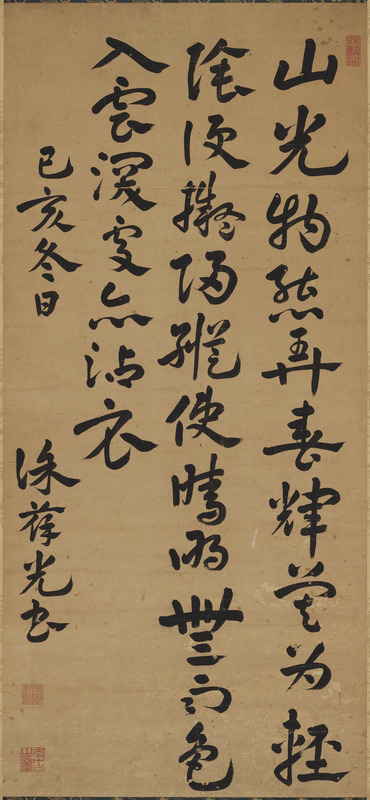 山光物態弄春輝莫為輕
陰便擬歸縱使晴明無雨色
入雲深處亦沾衣
己亥冬日
徐葆光書